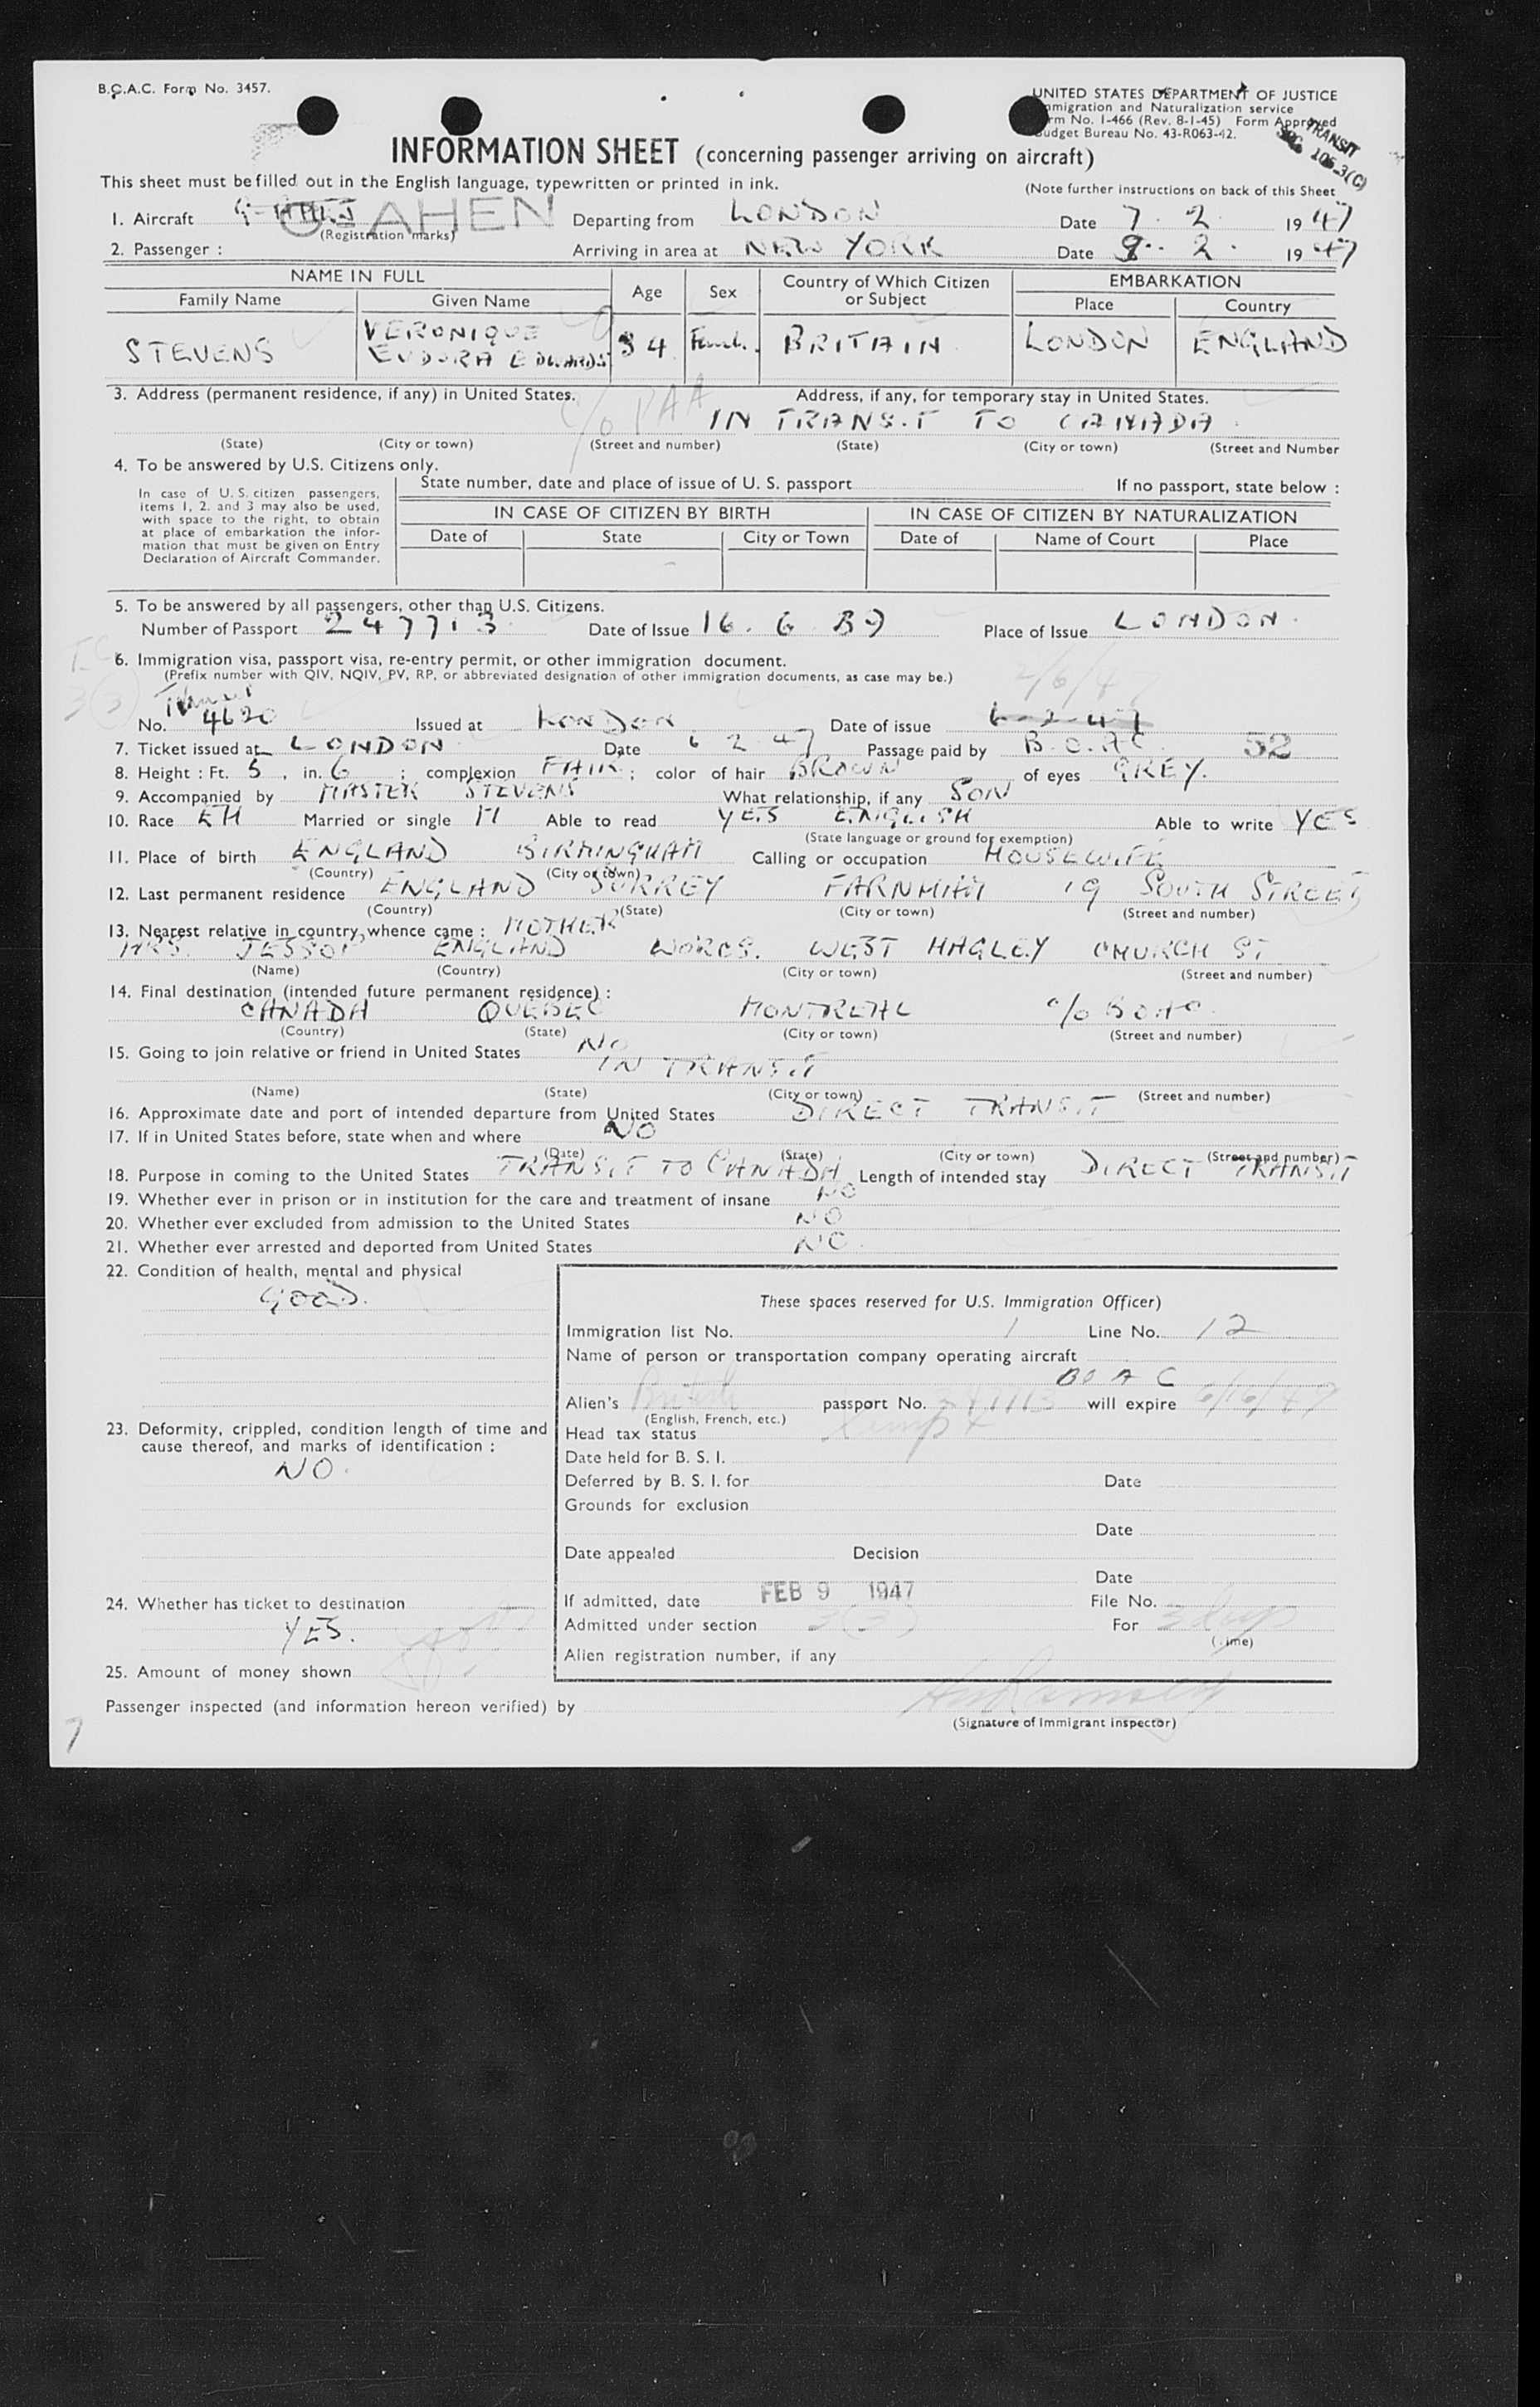 B.O.A.C. Form No. 3457.
UNITED STATES DEPARTMENT OF JUSTICE
Immigration and Naturalization service
Form No. I-466 (Rev. 8-1-45) Form Approved
Budget Bureau No. 43-R063-42.
TRANSIT
SEC. 105.3(C)
INFORMATION SHEET (concerning passenger arriving on aircraft)
This sheet must be filled out in the English language, typewritten or printed in ink.
(Note further instructions on back of this Sheet
1. Aircraft G-AHEN Departing from LONDON Date 7. 2. 1947
(Registration marks)
2. Passenger : Arriving in area at NEW YORK Date 9. 2. 1947
NAME IN FULL Age Sex Country of Which Citizen or Subject EMBARKATION
Family Name Given Name Place Country
STEVENS VERONIQUE EUDORA EDWARDS 34 Female BRITAIN LONDON ENGLAND
3. Address (permanent residence, if any) in United States. Address, if any, for temporary stay in United States.
c/o PAA IN TRANSIT TO CANADA
(State) (City or town) (Street and number) (State) (City or town) (Street and Number
4. To be answered by U.S. Citizens only.
In case of U.S. citizen passengers, items 1, 2. and 3 may also be used, with space to the right, to obtain at place of embarkation the information that must be given on Entry Declaration of Aircraft Commander.
State number, date and place of issue of U. S. passport If no passport, state below :
IN CASE OF CITIZEN BY BIRTH IN CASE OF CITIZEN BY NATURALIZATION
Date of State City or Town Date of Name of Court Place
5. To be answered by all passengers, other than U.S. Citizens.
Number of Passport 247713 Date of Issue 16. 6 39 Place of Issue LONDON.
6. Immigration visa, passport visa, re-entry permit, or other immigration document.
(Prefix number with QIV, NQIV, PV, RP, or abbreviated designation of other immigration documents, as case may be.)
2/6/47
No. 4620 Issued at LONDON Date of issue 6-2-47
7. Ticket issued at LONDON Date 6 2 47 Passage paid by B.O.A.C. 52
8. Height : Ft. 5, in. 6 ; complexion FAIR ; color of hair BROWN of eyes GREY.
9. Accompanied by MASTER STEVENS What relationship, if any SON
10. Race EH Married or single M Able to read YES ENGLISH Able to write YES
(State language or ground for exemption)
11. Place of birth ENGLAND BIRMINGHAM Calling or occupation HOUSEWIFE
(Country) (City or town)
12. Last permanent residence ENGLAND SURREY FARNHAM 19 SOUTH STREET
(Country) (State) (City or town) (Street and number)
13. Nearest relative in country whence came : MOTHER
MRS. JESSOP ENGLAND WORCS. WEST HAGLEY CHURCH ST
(Name) (Country) (City or town) (Street and number)
14. Final destination (intended future permanent residence) :
CANADA QUEBEC MONTREAL c/o BOAC.
(Country) (State) (City or town) (Street and number)
15. Going to join relative or friend in United States NO
IN TRANSIT
(Name) (State) (City or town) (Street and number)
16. Approximate date and port of intended departure from United States DIRECT TRANSIT
17. If in United States before, state when and where NO
(Date) (State) (City or town) (Street and number)
18. Purpose in coming to the United States TRANSIT TO CANADA Length of intended stay DIRECT TRANSIT
19. Whether ever in prison or in institution for the care and treatment of insane NO
20. Whether ever excluded from admission to the United States NO
21. Whether ever arrested and deported from United States NO.
22. Condition of health, mental and physical
GOOD.
These spaces reserved for U.S. Immigration Officer)
Immigration list No. 1 Line No. 12
Name of person or transportation company operating aircraft
BOAC
Alien's British passport No. 247713 will expire 6/16/47
(English, French, etc.)
23. Deformity, crippled, condition length of time and cause thereof, and marks of identification :
NO.
Head tax status
Date held for B. S. I.
Deferred by B. S. I. for Date
Grounds for exclusion
Date
Date appealed Decision
Date
If admitted, date FEB 9 1947 File No.
24. Whether has ticket to destination
YES.
Admitted under section 3(3) For 3 days
(Time)
Alien registration number, if any
25. Amount of money shown
Passenger inspected (and information hereon verified) by
(Signature of Immigrant Inspector)
7